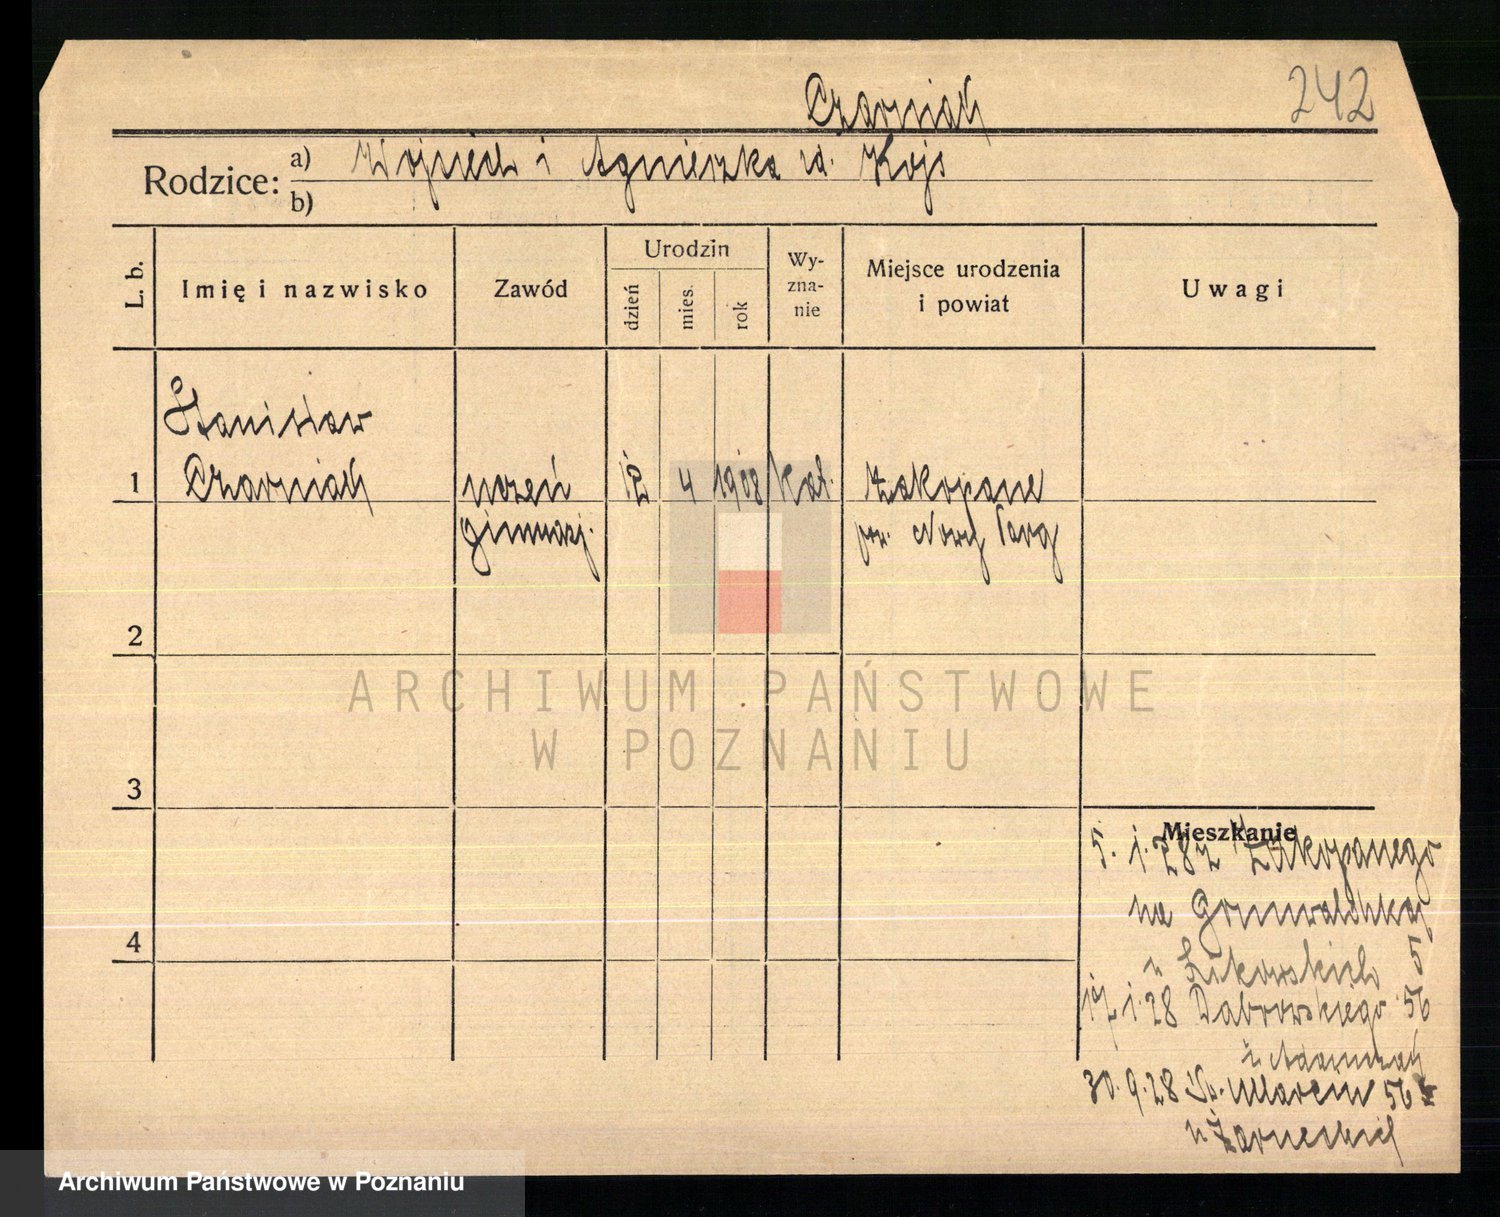 Czarniak
242
Rodzice: a) Wojciech i Agnieszka zd. Kojs
b)
L. b.
Imię i nazwisko
Zawód
Urodzin
dzień
mies.
rok
Wy-
zna-
nie
Miejsce urodzenia
i powiat
Uwagi
Stanisław
1 Czarniak uczeń 12 4 1908 kat. Zakopane
gimnazj. pow. Nowy Targ
2
3
4
ARCHIWUM PAŃSTWOWE
W POZNANIU
Mieszkanie
5. 1. 28 z Zakopanego
na Grunwaldzką
u 5
17. 1. 28 Dąbrowskiego 56
u
30. 9. 28 Św. Marcin 56
u Żarneckich
Archiwum Państwowe w Poznaniu